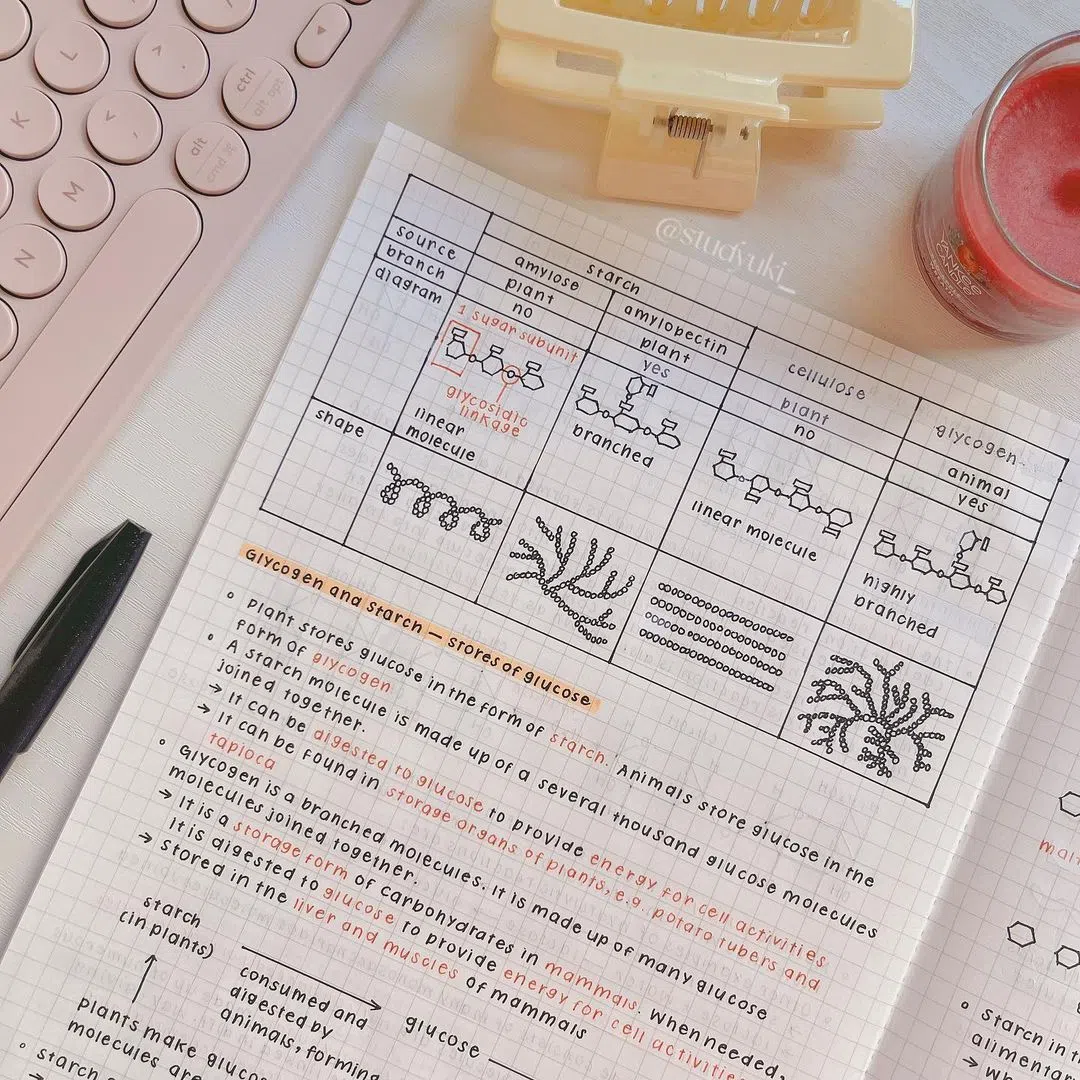 L
K
M
N
<
,
^
.
ctrl
alt opt
alt
cmd ⌘
@studyuki_
YANKEE
CANDLE
starch
cellulose
glycogen
amylose
amylopectin
source
plant
plant
plant
animal
branch
no
yes
no
yes
diagram
1 sugar subunit
glycosidic
linkage
linear
molecule
branched
linear molecule
highly
branched
shape
Glycogen and starch — stores of glucose
Plant stores glucose in the form of starch. Animals store glucose in the
form of glycogen
A starch molecule is made up of a several thousand glucose molecules
joined together.
→ It can be digested to glucose to provide energy for cell activities
→ It can be found in storage organs of plants, e.g. potato tubers and
tapioca
Glycogen is a branched molecules. It is made up of many glucose
molecules joined together.
→ It is a storage form of carbohydrates in mammals. When needed,
It is digested to glucose to provide energy for cell activities
→ Stored in the liver and muscles of mammals
starch
(in plants)
consumed and
digested by
animals, forming
glucose
plants make gluco
molecules are
starch
malt
starch in t
alimentar
→ Wh